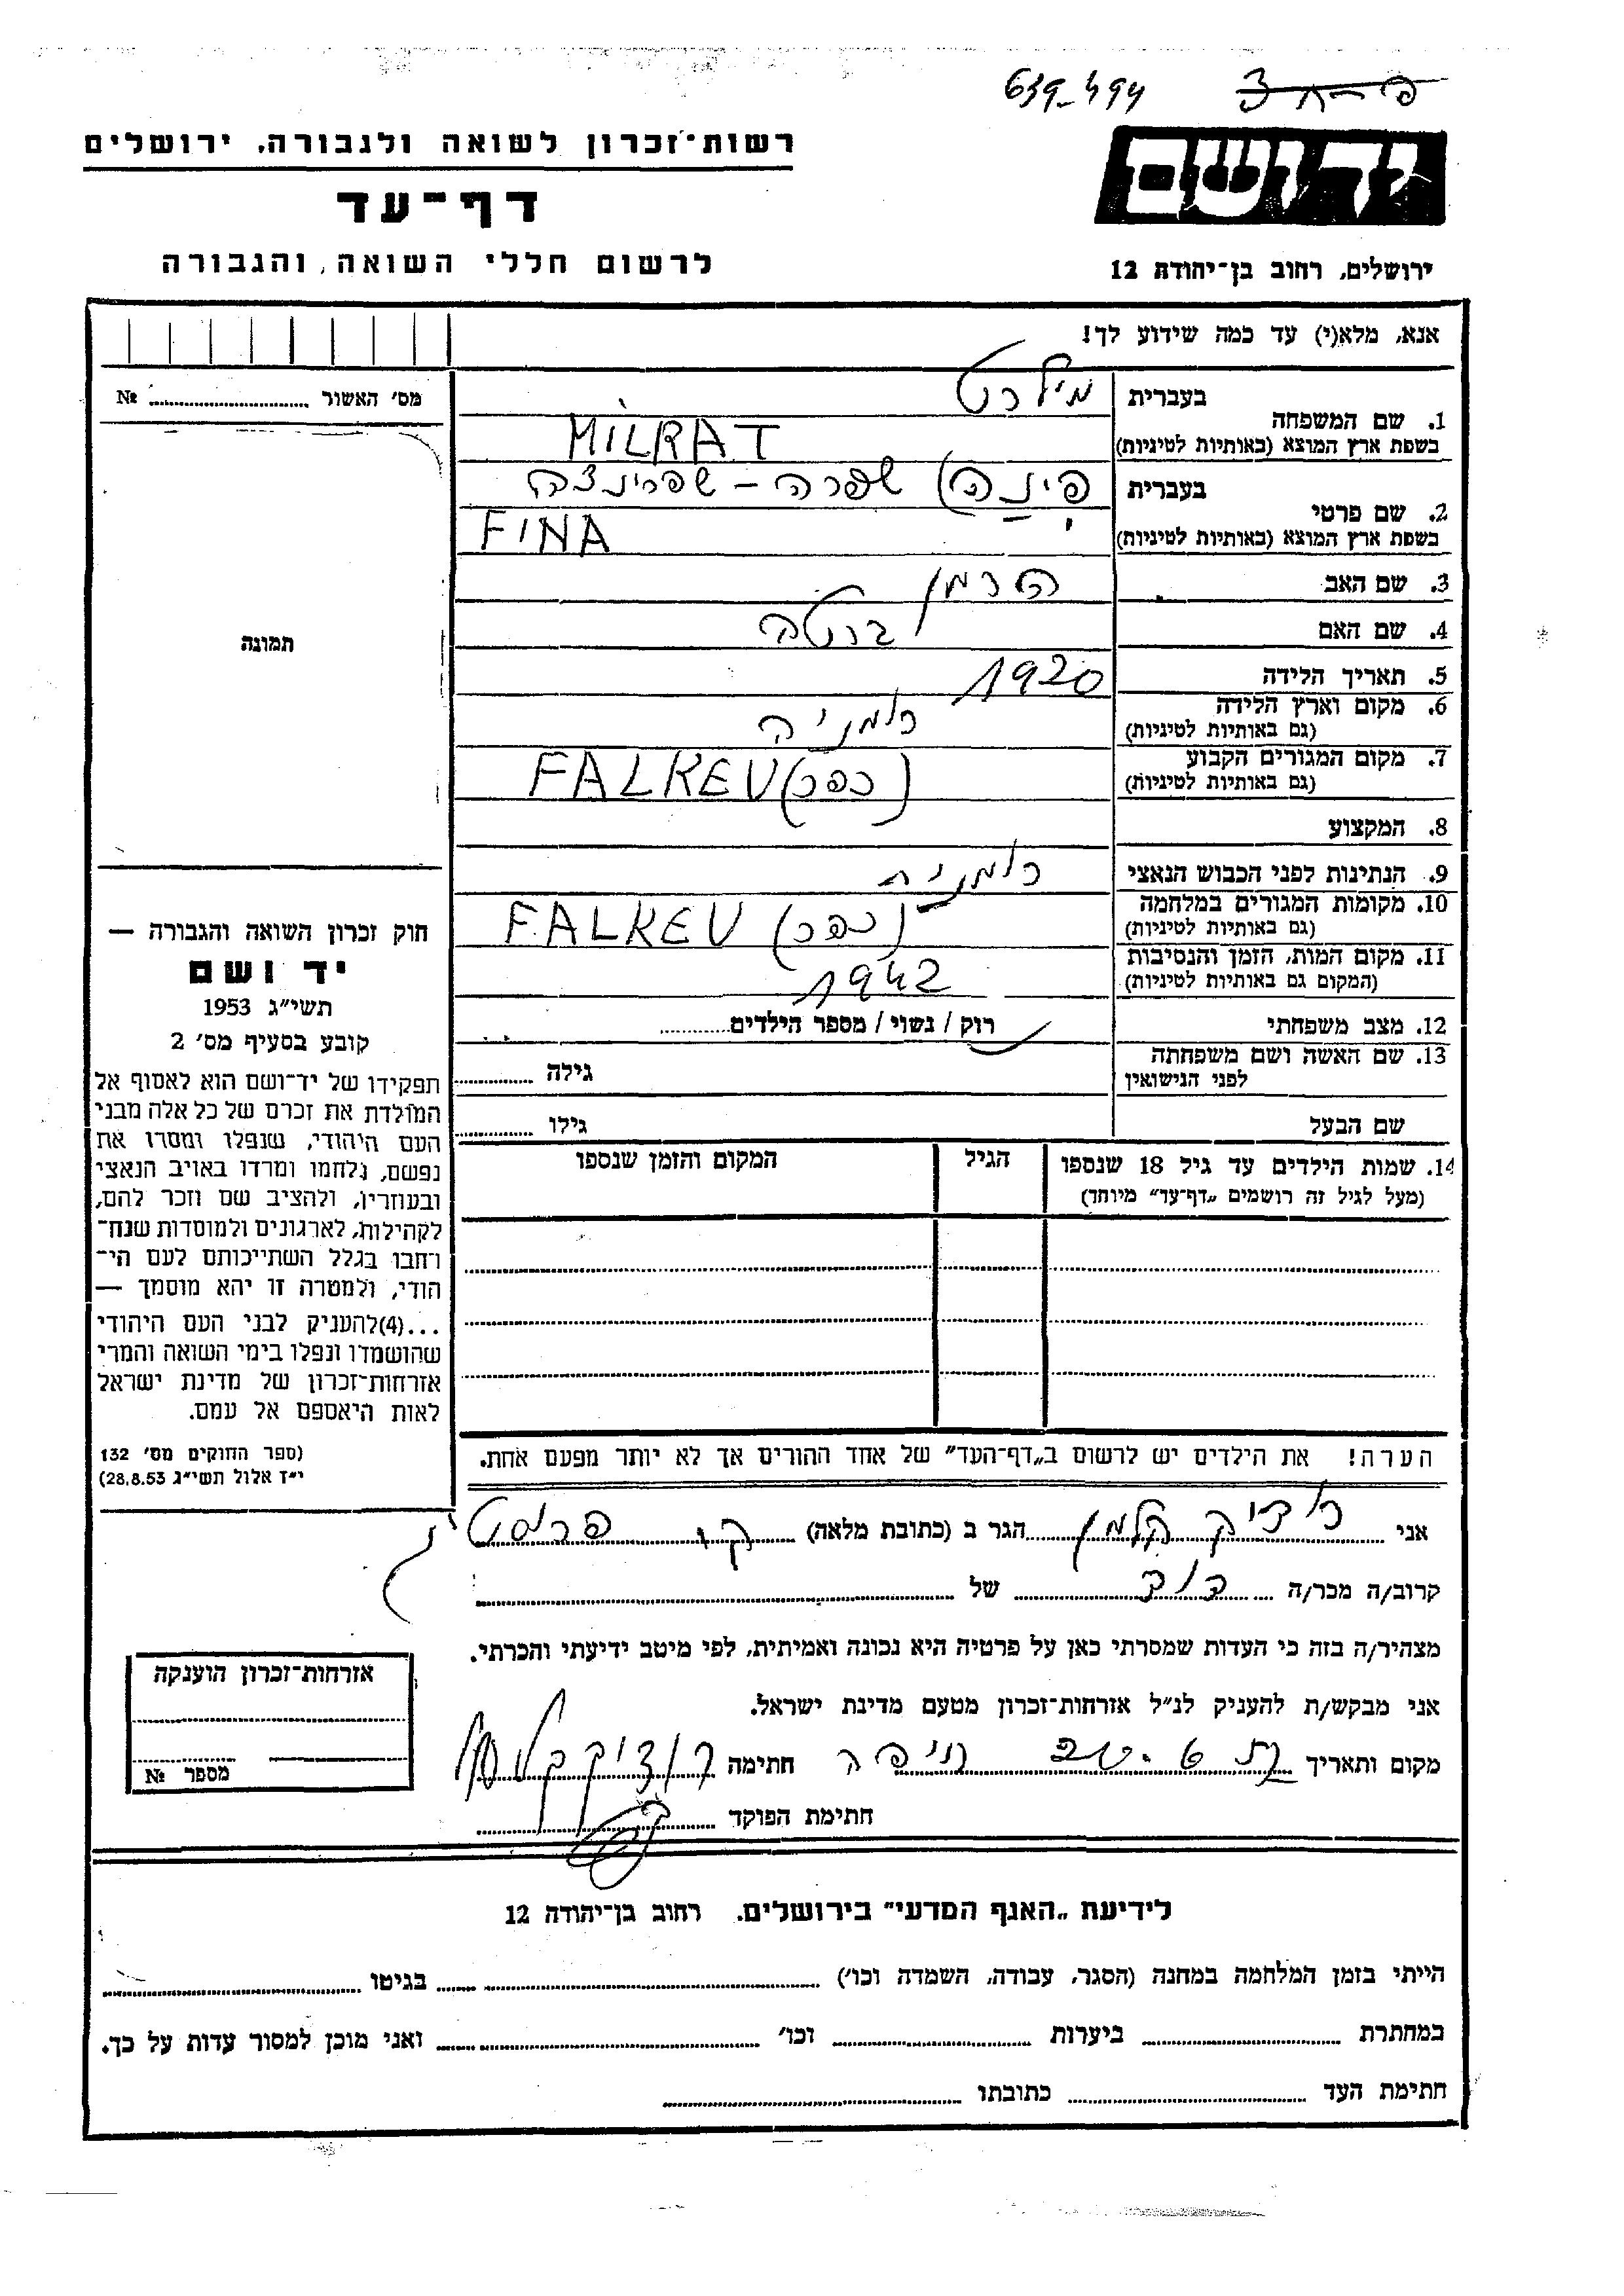 639-494
יד ושם
רשות־זכרון לשואה ולגבורה, ירושלים
דף־עד
לרשום חללי השואה והגבורה
ירושלים, רחוב בן־יהודה 12
אנא, מלא(י) עד כמה שידוע לך!
מס׳ האשור № 
1. שם המשפחה
בעברית מילרט
בשפת ארץ המוצא (באותיות לטיניות) MILRAT
2. שם פרטי
בעברית פינה (שפרה - שפרינצה
בשפת ארץ המוצא (באותיות לטיניות) FINA
3. שם האב הרמן
4. שם האם ברטה
5. תאריך הלידה 1920
6. מקום וארץ הלידה רומניה
(גם באותיות לטיניות)
7. מקום המגורים הקבוע FALKEU (כפר)
(גם באותיות לטיניות)
8. המקצוע
9. הנתינות לפני הכבוש הנאצי רומנית
10. מקומות המגורים במלחמה FALKEU (כפר)
(גם באותיות לטיניות)
11. מקום המות, הזמן והנסיבות 1942
(המקום גם באותיות לטיניות)
12. מצב משפחתי רוק / נשוי / מספר הילדים
13. שם האשה ושם משפחתה גילה
לפני הנישואין
שם הבעל גילו
14. שמות הילדים עד גיל 18 שנספו הגיל המקום והזמן שנספו
(מעל לגיל זה רושמים „דף־עד” מיוחד)
הערה! את הילדים יש לרשום ב„דף־העד” של אחד ההורים אך לא יותר מפעם אחת.
תמונה
חוק זכרון השואה והגבורה —
יד ושם
תשי״ג 1953
קובע בסעיף מס׳ 2
תפקידו של יד־ושם הוא לאסוף אל
המולדת את זכרם של כל אלה מבני
העם היהודי, שנפלו ומסרו את
נפשם, נלחמו ומרדו באויב הנאצי
ובעוזריו, ולהציב שם וזכר להם,
לקהילות, לארגונים ולמוסדות שנח־
רחבו בגלל השתייכותם לעם הי־
הודי, ולמטרה זו יהא מוסמך —
...(4)להעניק לבני העם היהודי
שהושמדו ונפלו בימי השואה והמרי
אזרחות־זכרון של מדינת ישראל
לאות היאספם אל עמם.
(ספר החוקים מס׳ 132
י״ז אלול תשי״ג 28.8.53)
אני רודיק קלמן הגר ב (כתובת מלאה) ק.
קרוב/ה מכר/ה דוד של
מצהיר/ה בזה כי העדות שמסרתי כאן על פרטיה היא נכונה ואמיתית, לפי מיטב ידיעתי והכרתי.
אני מבקש/ת להעניק לנ״ל אזרחות־זכרון מטעם מדינת ישראל.
מקום ותאריך חיפה חתימה רודיק קלמן
חתימת הפוקד
אזרחות־זכרון הוענקה
מספר №
לידיעת „האגף המדעי” בירושלים. רחוב בן־יהודה 12
הייתי בזמן המלחמה במחנה (הסגר, עבודה, השמדה וכו׳) בגיטו
במחתרת ביערות וכו׳ ואני מוכן למסור עדות על כך.
חתימת העד כתובתו